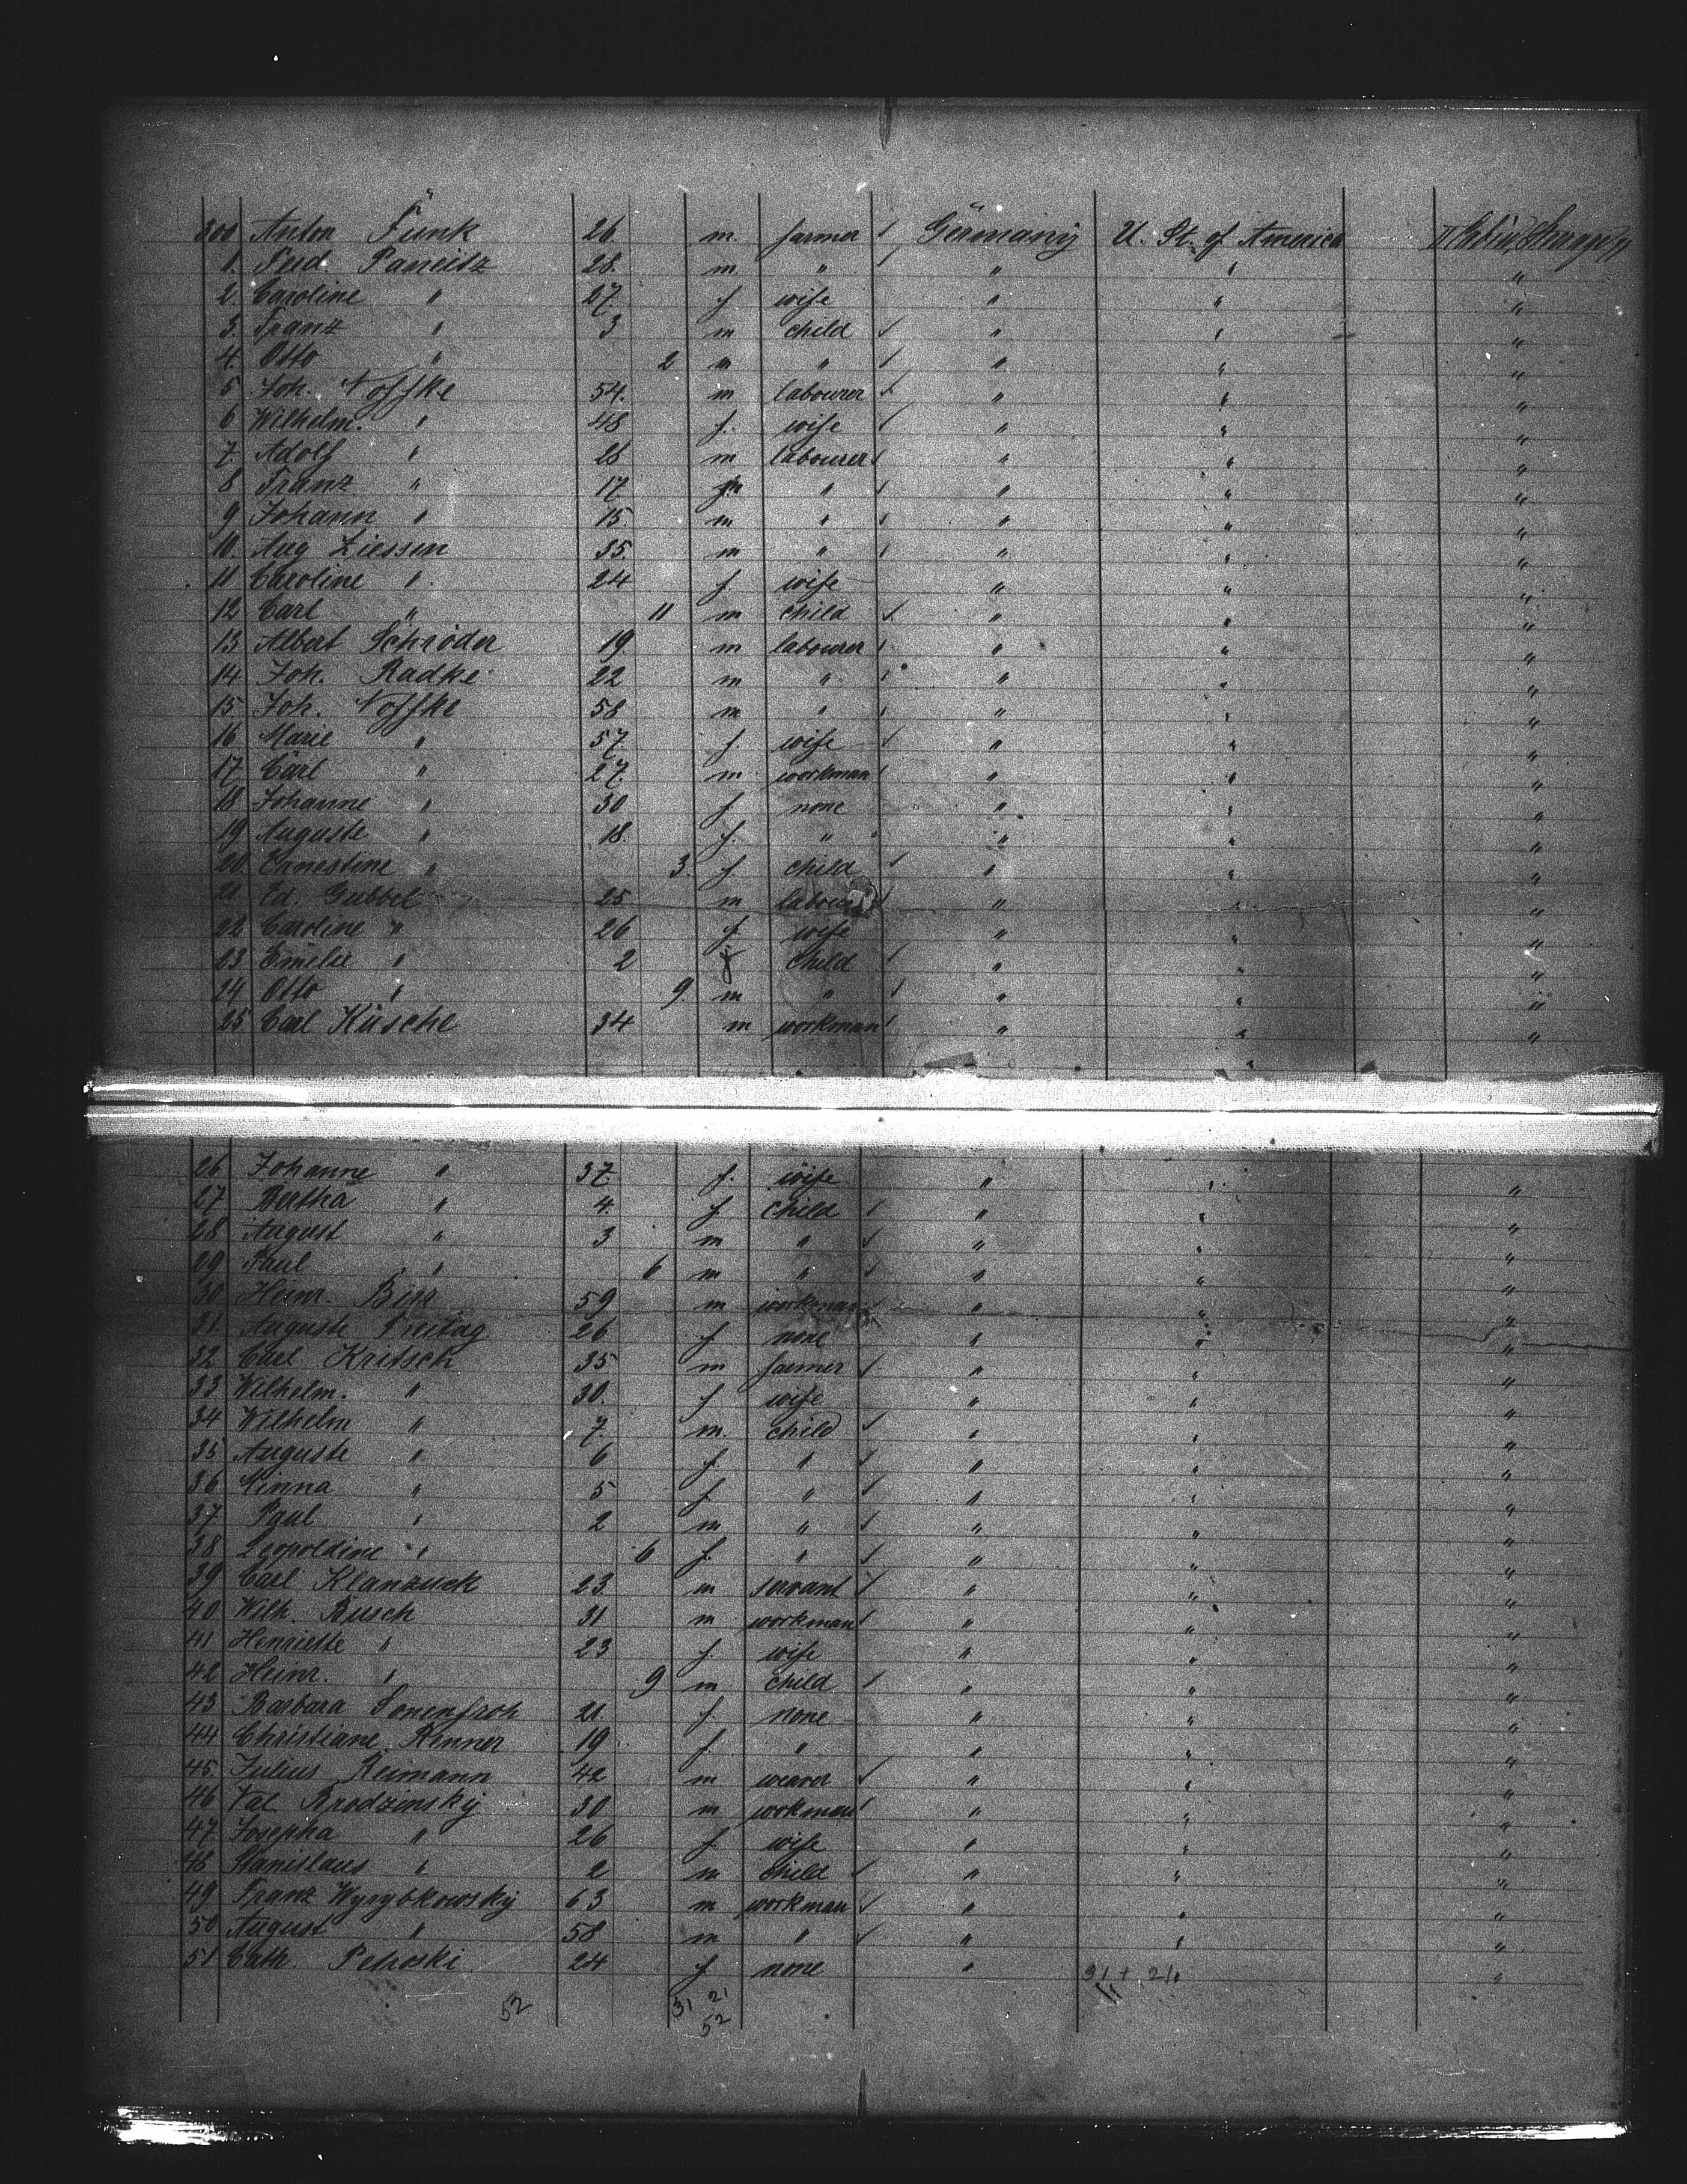 800 Anton Funk 26. m. farmer Germany U. St. of America
1. Ferd. Paneitz 28. m. " " " "
2. Caroline " 27. f wife " " "
3. Franz " 3 m child " " "
4. Otto " 2 m " " " "
5 Joh. Noffke 54. m labourer " " "
6 Wilhelm. " 48 f. wife " " "
7. Adolf " 28 m labourer " " "
8 Franz " 17 m " " " "
9 Johann " 15 m " " " "
10. Aug Ziessen 35. m " " " "
11 Caroline " 24 f. wife " " "
12 Carl " 11 m child " " "
13 Albert Schröder 19. m labourer " " "
14 Joh. Radke 22 m " " " "
15 Joh. Noffke 58 m " " " "
16 Marie " 57 f. wife " " "
17 Carl " 27. m workman " " "
18 Johanne " 30 f. none " " "
19 Auguste " 18. f. " " " "
20. Ernestine " 3. f child " " "
21 Ed. Gubbel 25 m labourer " " "
22 Caroline " 26 f. wife " " "
23 Emilie " 2 f child " " "
24 Otto " 9 m " " " "
25 Carl Küsche 34 m workman " " "
26 Johanne " 37 f. wife " " "
27 Bertha " 4. f child " " "
28 August " 3 m " " " "
29 Paul " 6 m " " " "
30 Heinr. 59 m workman " " "
31 Auguste Freitag 26 f none " " "
32 Carl Kritsch 35 m farmer " " "
33 Wilhelm. " 30. f wife " " "
34 Wilhelm " 7. m. child " " "
35 Auguste " 6 f. " " " "
36 Minna " 5 f " " " "
37 Paul " 2 m " " " "
38 Leopoldine " 6 f. " " " "
39 Carl Klanzuck 23. m servant " " "
40 Wilh. Busch 31 m workman " " "
41 Henriette " 23 f. wife " " "
42 Heinr. " 9 m child " " "
43 Barbara Sonenfroh 21. f. none " " "
44 Christiane Renner 19 f. " " " "
45 Julius Reimann 42 m weaver " " "
46 Val. Brodzinsky 30 m workman " " "
47 Josepha " 26 f. wife " " "
48 Stanislaus " 2 m child " " "
49 Franz Wyrybkowsky 63 m workman " " "
50 August " 58 m " " " "
51 Cath. Petroski 24 f none " "
31 + 21
52 31 21
52